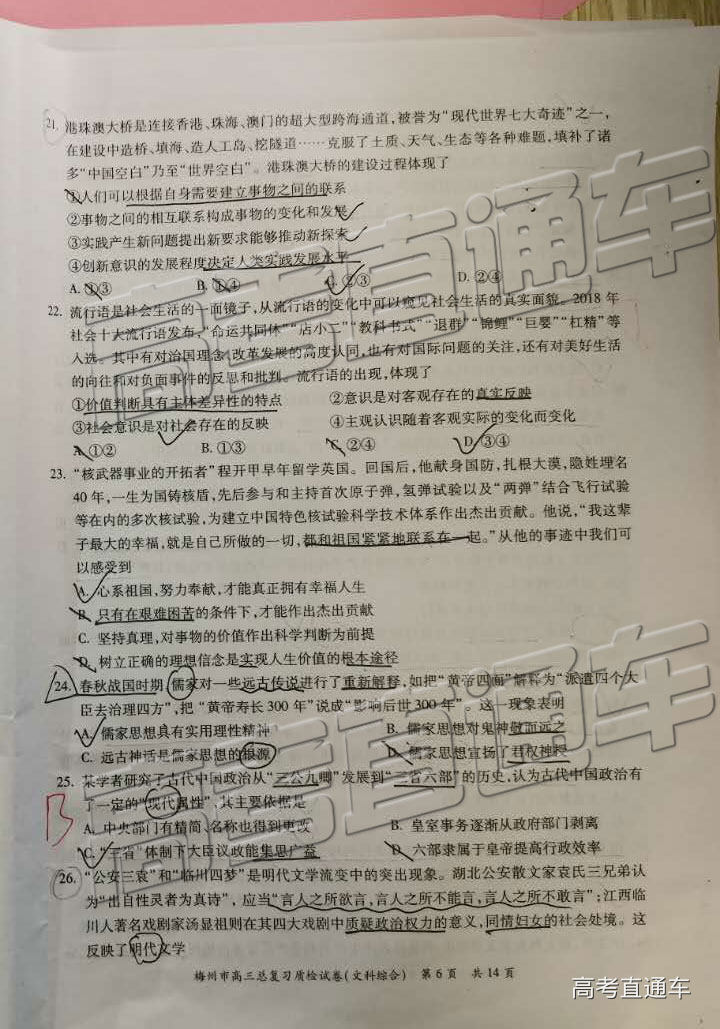 21. 港珠澳大桥是连接香港、珠海、澳门的超大型跨海通道，被誉为“现代世界七大奇迹”之一，
在建设中造桥、填海、造人工岛、挖隧道……克服了土质、天气、生态等各种难题，填补了诸
多“中国空白”乃至“世界空白”。港珠澳大桥的建设过程体现了
①人们可以根据自身需要建立事物之间的联系
②事物之间的相互联系构成事物的变化和发展
③实践产生新问题提出新要求能够推动新探索
④创新意识的发展程度决定人类实践发展水平
A. ①③ B. ①④ C. ②③ D. ②④
22. 流行语是社会生活的一面镜子，从流行语的变化中可以窥见社会生活的真实面貌。2018 年
社会十大流行语发布，“命运共同体”“店小二”“教科书式”“退群”“锦鲤”“巨婴”“杠精”等
入选。其中有对治国理念、改革发展的高度认同，也有对国际问题的关注，还有对美好生活
的向往和对负面事件的反思和批判。流行语的出现，体现了
①价值判断具有主体差异性的特点 ②意识是对客观存在的真实反映
③社会意识是对社会存在的反映 ④主观认识随着客观实际的变化而变化
A. ①② B. ①③ C. ②④ D. ③④
23. “核武器事业的开拓者”程开甲早年留学英国。回国后，他献身国防，扎根大漠，隐姓埋名
40 年，一生为国铸核盾，先后参与和主持首次原子弹，氢弹试验以及“两弹”结合飞行试验
等在内的多次核试验，为建立中国特色核试验科学技术体系作出杰出贡献。他说，“我这辈
子最大的幸福，就是自己所做的一切，都和祖国紧紧地联系在一起。”从他的事迹中我们可
以感受到
A. 心系祖国，努力奉献，才能真正拥有幸福人生
B. 只有在艰难困苦的条件下，才能作出杰出贡献
C. 坚持真理，对事物的价值作出科学判断为前提
D. 树立正确的理想信念是实现人生价值的根本途径
24. 春秋战国时期，儒家对一些远古传说进行了重新解释，如把“黄帝四面”解释为“派遣四个大
臣去治理四方”，把“黄帝寿长 300 年”说成“影响后世 300 年”。这一现象表明
A. 儒家思想具有实用理性精神 B. 儒家思想对鬼神敬而远之
C. 远古神话是儒家思想的根源 D. 儒家思想宣扬了君权神授
25. 某学者研究了古代中国政治从“三公九卿”发展到“三省六部”的历史，认为古代中国政治有
了一定的“现代属性”，其主要依据是
B
A. 中央部门有精简、名称也得到更改 B. 皇室事务逐渐从政府部门剥离
C. “三省”体制下大臣议政能集思广益 D. 六部隶属于皇帝提高行政效率
26. “公安三袁”和“临川四梦”是明代文学流变中的突出现象。湖北公安散文家袁氏三兄弟认
为“出自性灵者为真诗”，应当“言人之所欲言，言人之所不能言，言人之所不敢言”；江西临
川人著名戏剧家汤显祖则在其四大戏剧中质疑政治权力的意义，同情妇女的社会处境。这
反映了明代文学
梅州市高三总复习质检试卷(文科综合) 第 6 页 共 14 页
高考直通车
高考直通车
高考直通车